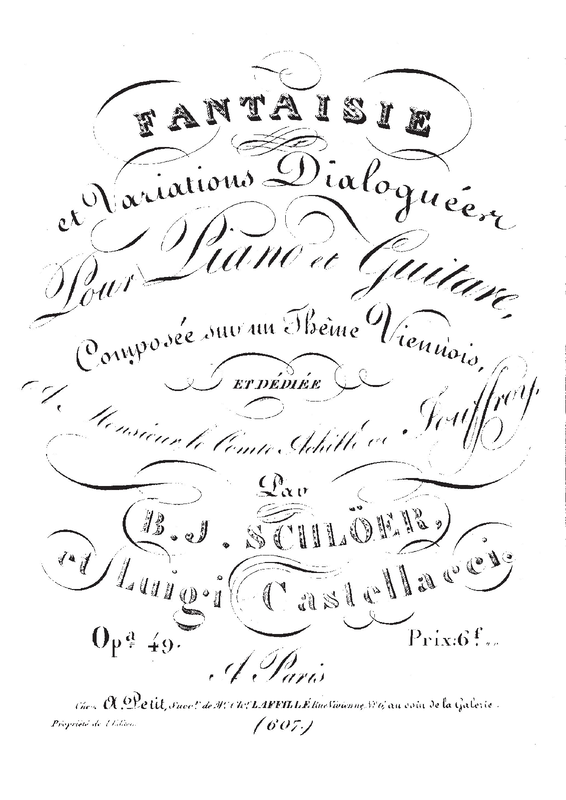 FANTAISIE
et Variations Dialoguées
Pour Piano et Guitare,
Composée sur un Thême Viennois,
ET DÉDIÉE
A Monsieur le Comte Achille de Jouffroy.
Par
B. J. SCHLÖER,
et Luigi Castellacci.
Opª 49. Prix: 6f
A Paris
Chez A. Petit, Succr. de Mr. Chs. LAFFILLÉ Rue Vivienne, No. 6, au coin de la Galerie.
Propriété de l'Editeur. (607.)